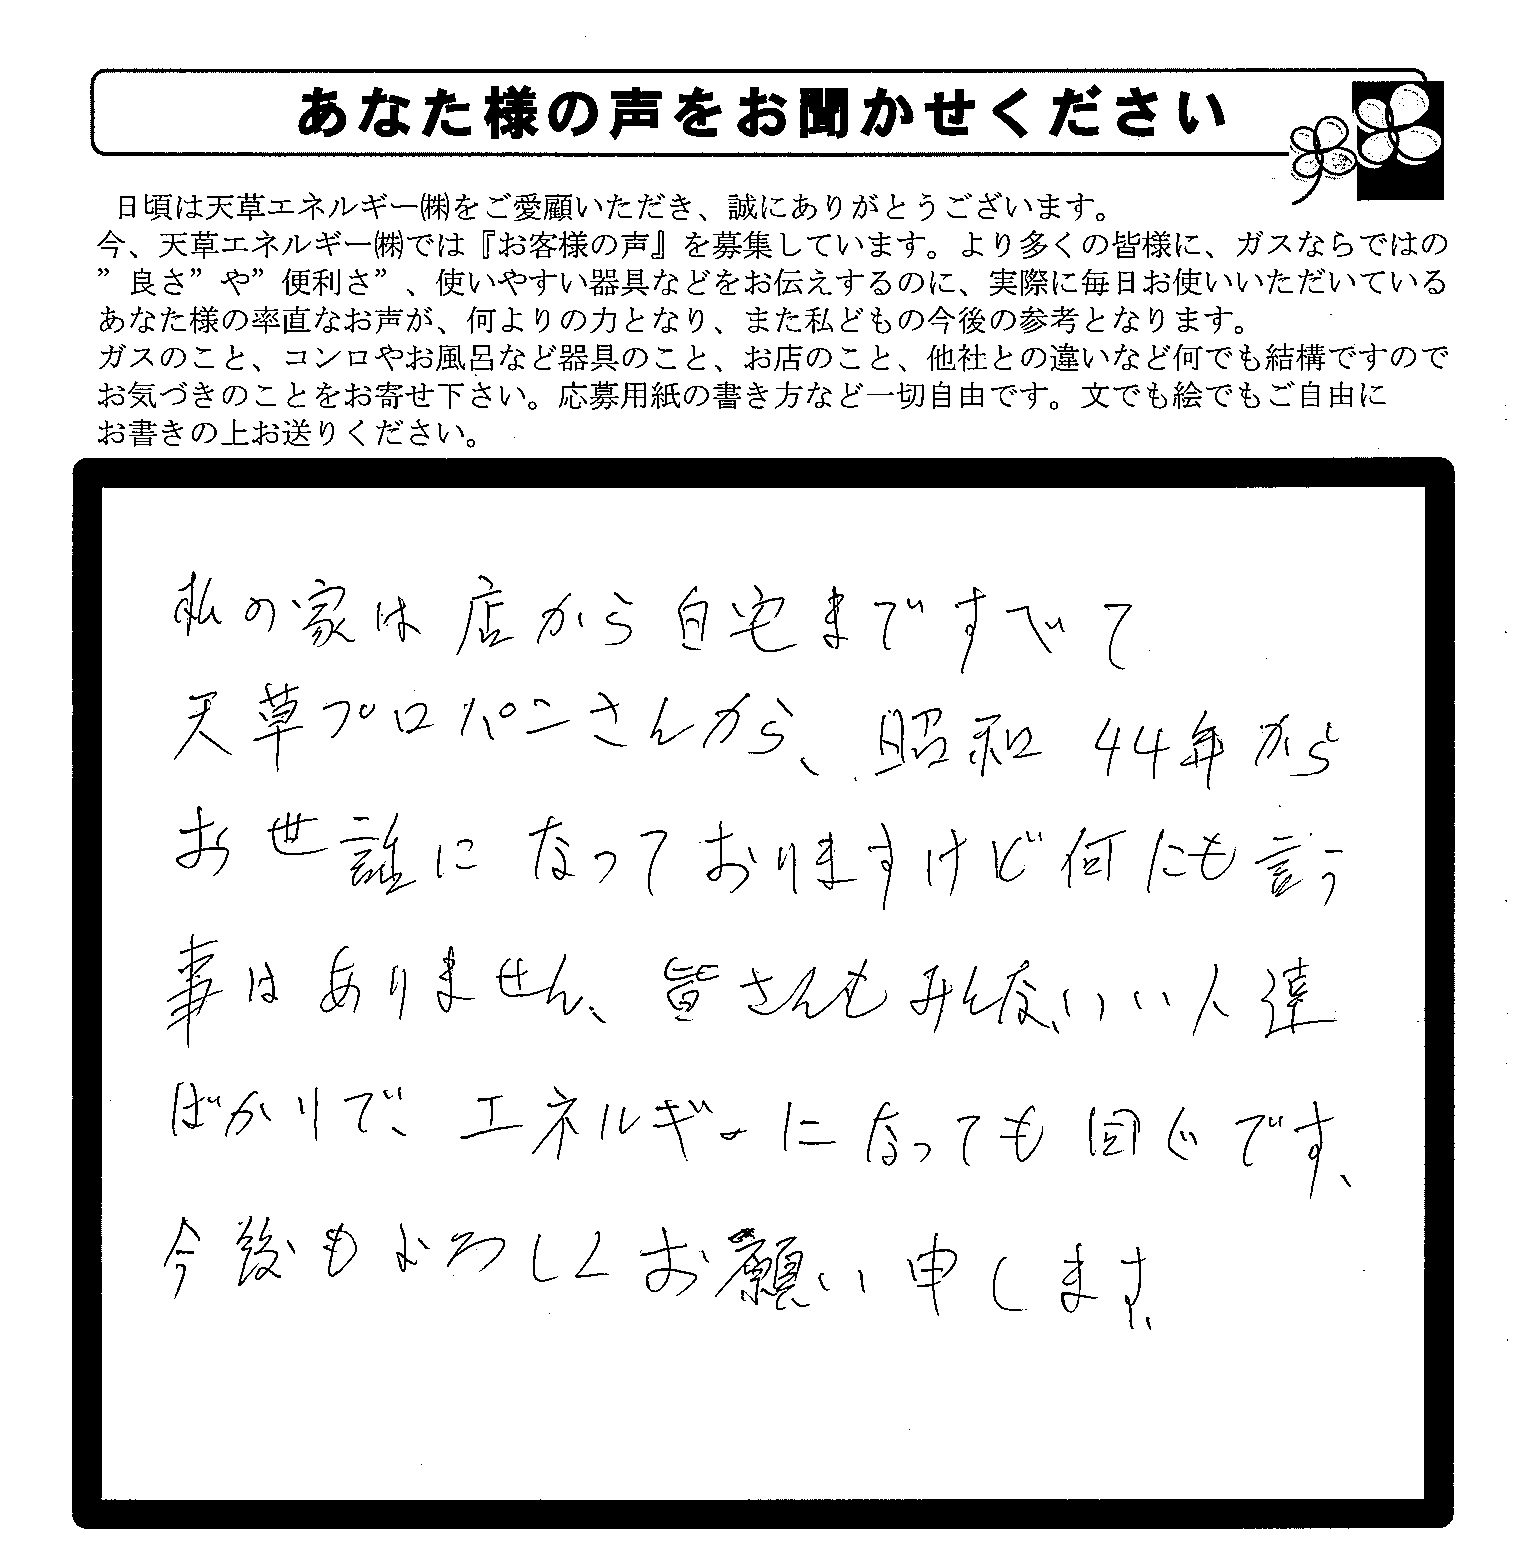 あなた様の声をお聞かせください
日頃は天草エネルギー㈱をご愛顧いただき、誠にありがとうございます。
今、天草エネルギー㈱では『お客様の声』を募集しています。より多くの皆様に、ガスならではの
”良さ”や”便利さ”、使いやすい器具などをお伝えするのに、実際に毎日お使いいただいている
あなた様の率直なお声が、何よりの力となり、また私どもの今後の参考となります。
ガスのこと、コンロやお風呂など器具のこと、お店のこと、他社との違いなど何でも結構ですので
お気づきのことをお寄せ下さい。応募用紙の書き方など一切自由です。文でも絵でもご自由に
お書きの上お送りください。
私の家は店から自宅まですべて
天草プロパンさんから、昭和44年から
お世誰になっておりますけど何にも言う
事はありません、皆さんもみんないい人達
ばかりで、エネルギーになっても同じです、
今後もよろしくお願い申します、